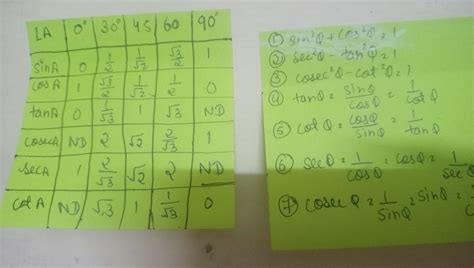 LA 0° 30° 45 60 90°
sinA 0 1/2 1/√2 √3/2 1
cosA 1 √3/2 1/√2 1/2 0
tanA 0 1/√3 1 √3 ND
cosecA ND 2 √2 2/√3 1
secA 1 2/√3 √2 2 ND
cotA ND √3 1 1/√3 0
① sin²Q + cos²Q = 1
② sec²Q - tan²Q = 1
③ cosec²Q - cot²Q = 1
④ tanQ = sinQ/cosQ = 1/cotQ
⑤ cotQ = cosQ/sinQ = 1/tanQ
⑥ secQ = 1/cosQ = cosQ = 1/sec
⑦ cosecQ = 1/sinQ = sinQ =